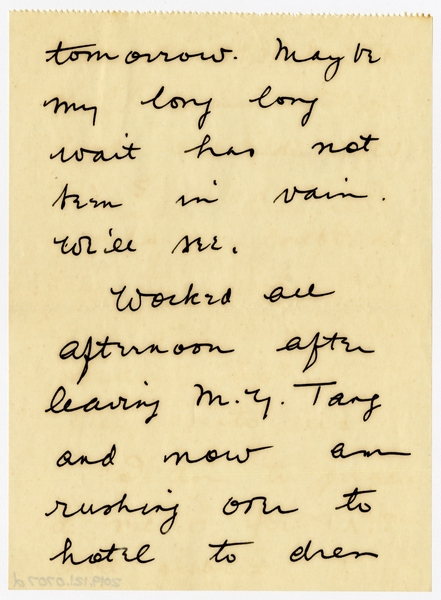 tomorrow. Maybe
my long long
wait has not
been in vain.
We'll see.
Worked all
afternoon after
leaving M.Y. Tang
and now am
rushing over to
hotel to dress
2019.121.0707d